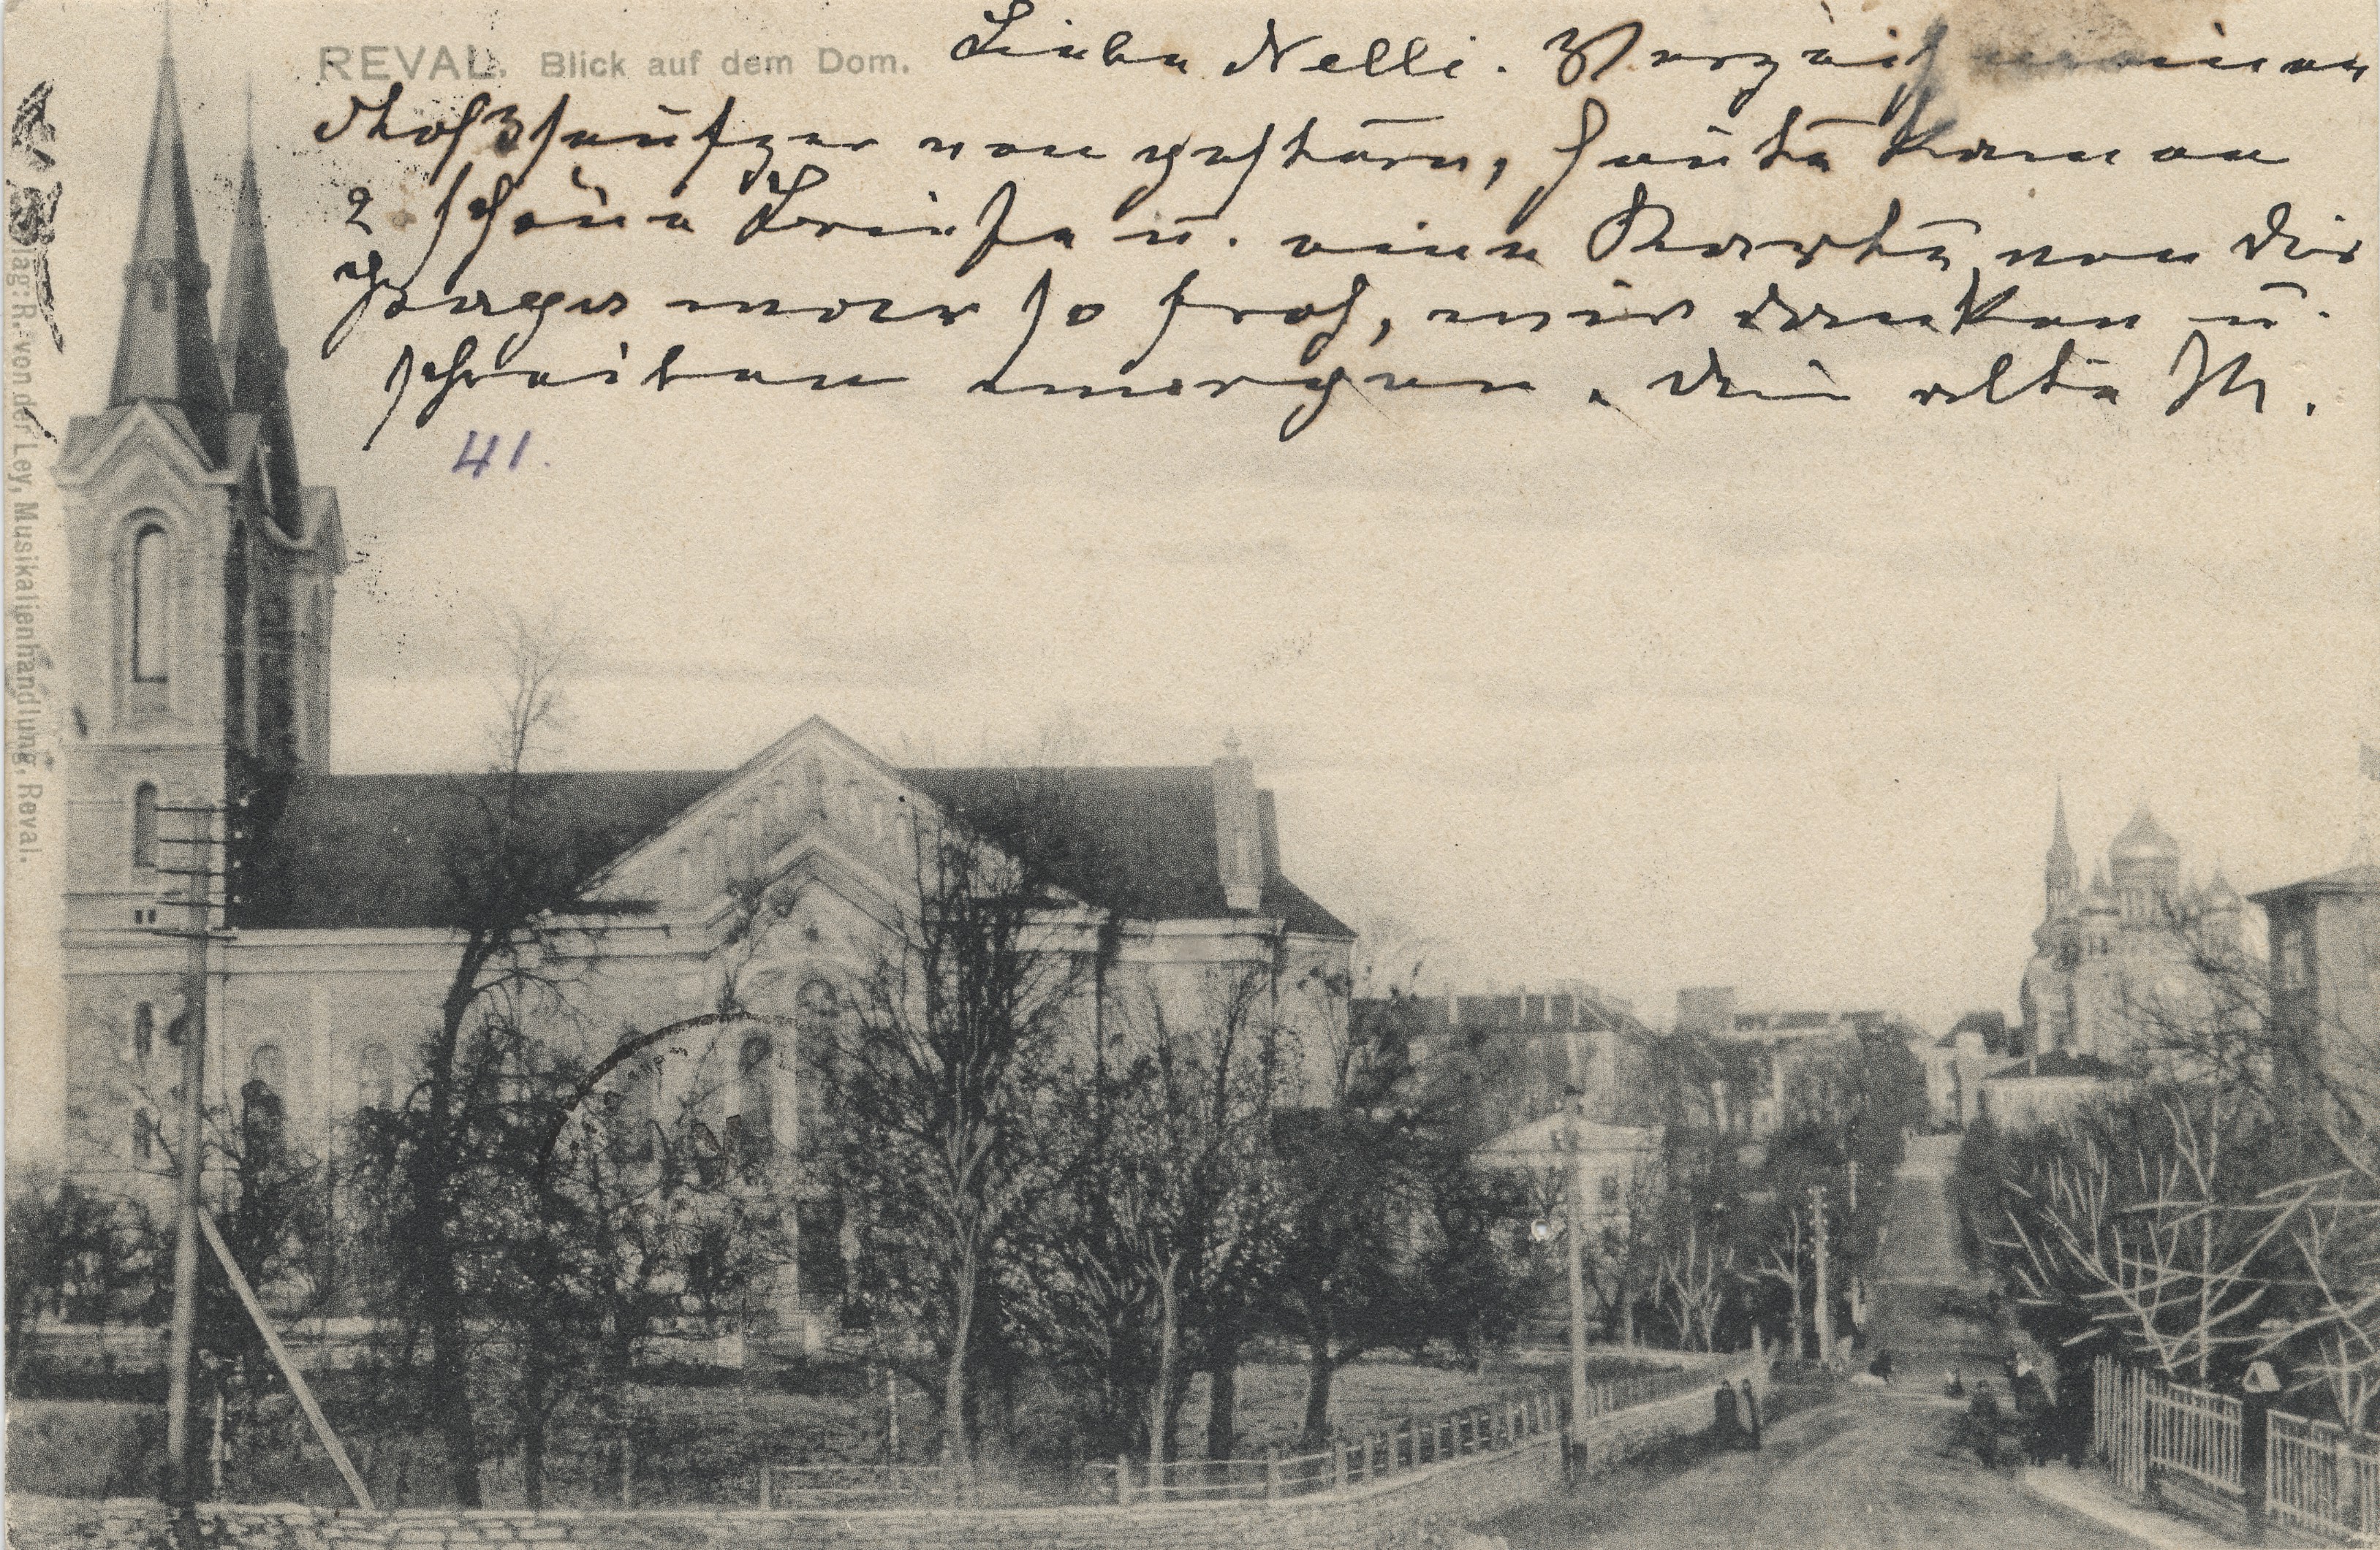 REVAL. Blick auf dem Dom.
Liebe Nelli. Verzeih meinen
Stoßseufzer von gestern, heute kamen
2 schöne Briefe u. eine Karte, von dir
war so froh, wir danken u.
schreiben morgen. Dein alte M.
41.
lag: R. von der Ley, Musikalienhandlung, Reval.